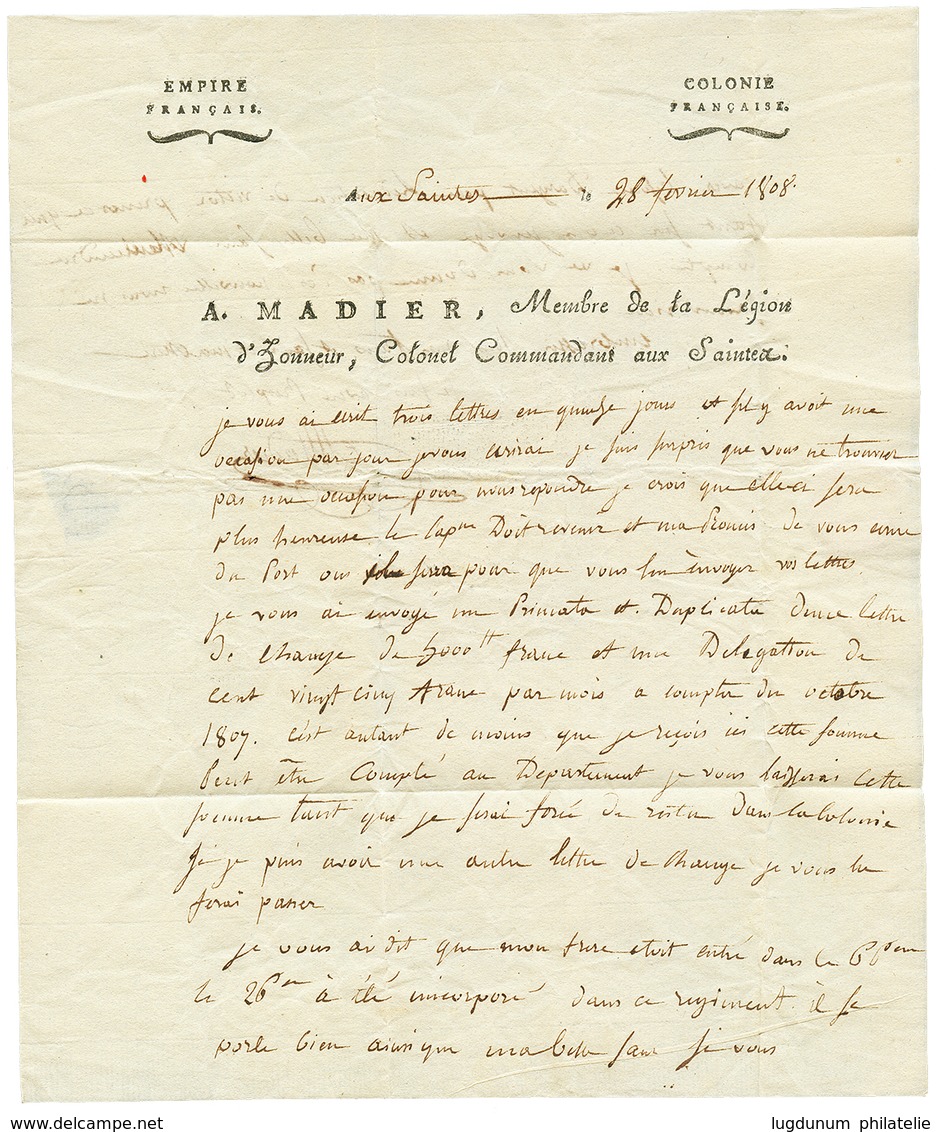 EMPIRE
FRANÇAIS.
COLONIE
FRANÇAISE.
Aux Saintes le 28 fevrier 1808.
A. MADIER, Membre de la Légion
d'Honneur, Colonel Commandant aux Saintes.
je vous ai ecrit trois lettres en quinze jours et s'il y avoit une
occasion par jour je vous ecrirai je suis surpris que vous ne trouvier
pas une occasion pour nous repondre je crois que celle ci sera
plus heureuse le capne Doit revenir et m'a Promis de vous ecrire
du Port ou il sera pour que vous lui envoyer vos lettres
je vous ai envoyé un Primata et Duplicata d'une lettre
de change de 5000tt franc et une Delegation de
cent vingt cinq franc par mois a compter du octobre
1807. c'est autant de moins que je reçois ici cette somme
Peut être Compté au Departement je vous laisserai cette
somme tant que je serai forcé de rester dans la Colonie
Si je puis avoir une autre lettre de change je vous la
ferai passer
je vous ai dit que mon frere etoit entré dans le 66eme
le 26me à été incorporé dans ce regiment. il se
porte bien ainsi que ma belle soeur je vous
lugdunum philatelie